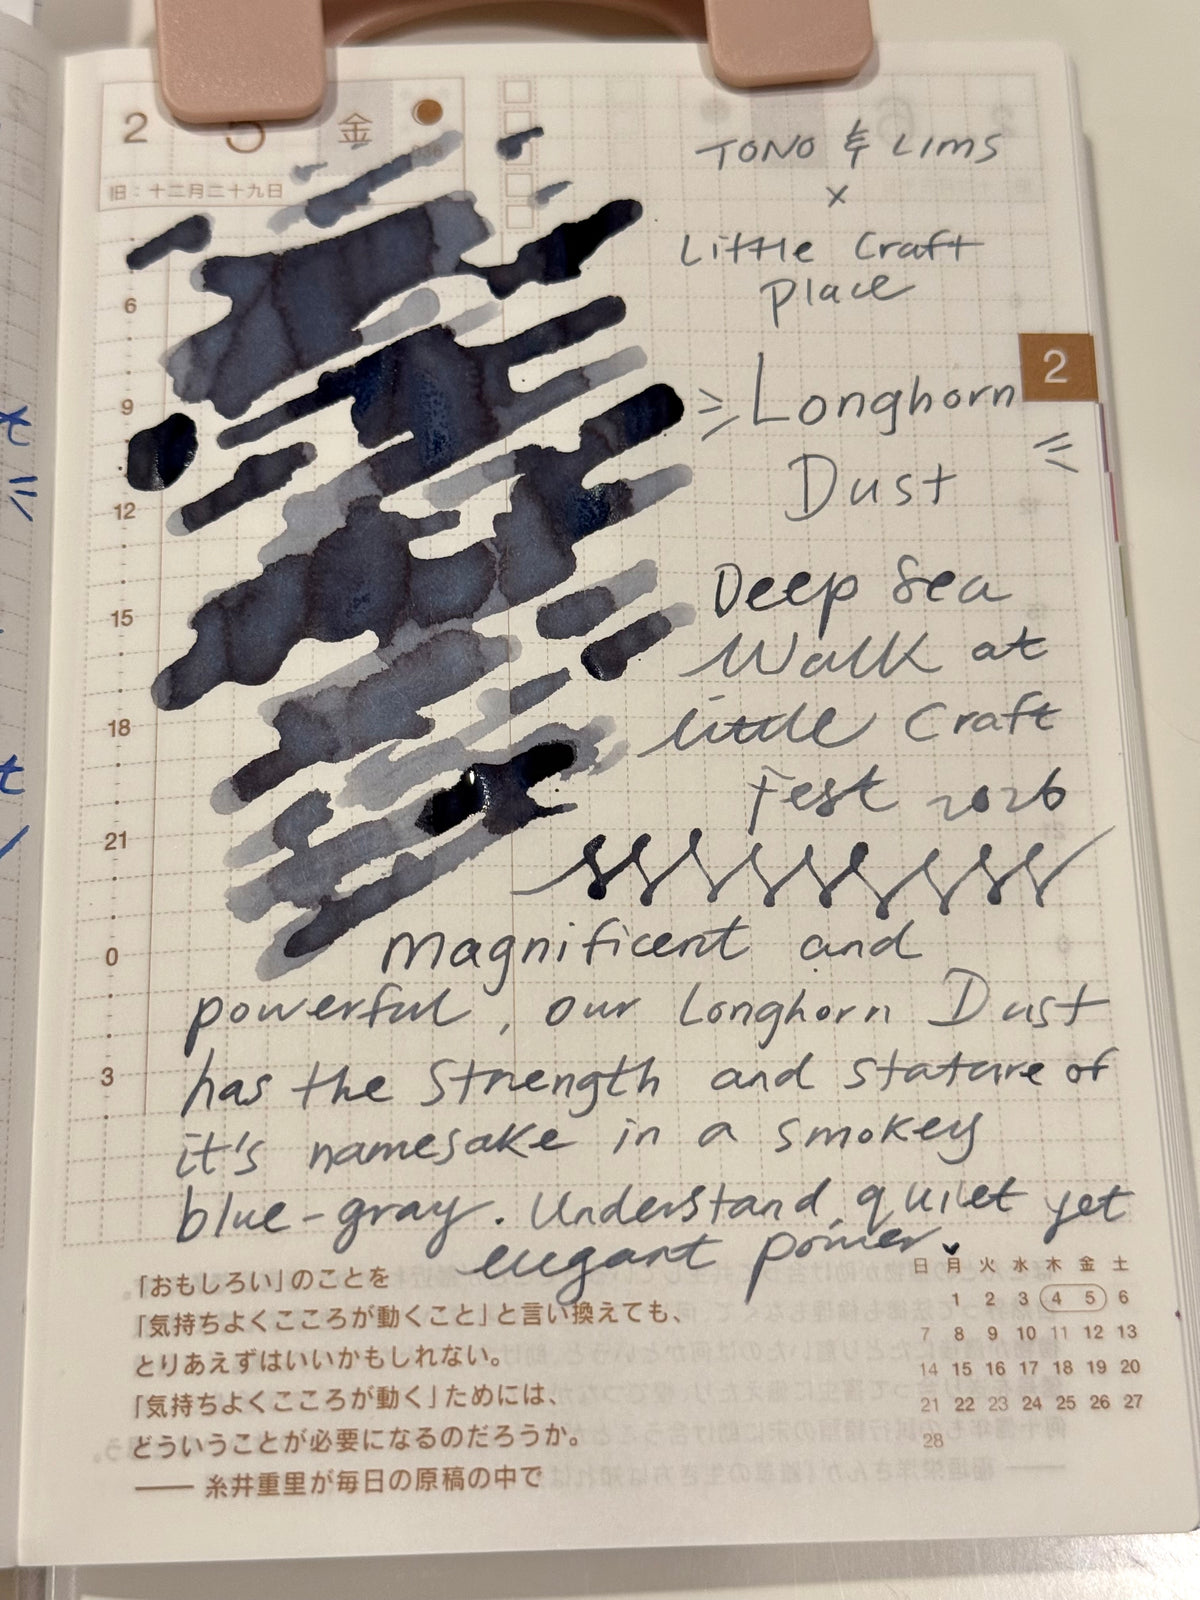 2 5 金
旧：十二月二十九日
TONO & LIMS
x
Little Craft
Place
Longhorn
Dust
2
Deep Sea
Walk at
little Craft
Fest 2026
6
9
12
15
18
21
0
3
Magnificent and
powerful, our Longhorn Dust
has the Strength and stature of
it's namesake in a smokey
blue-gray. Understand, quiet yet
elegant power.
「おもしろい」のことを
「気持ちよくこころが動くこと」と言い換えても、
とりあえずはいいかもしれない。
「気持ちよくこころが動く」ためには、
どういうことが必要になるのだろうか。
── 糸井重里が毎日の原稿の中で
日 月 火 水 木 金 土
1 2 3 4 5 6
7 8 9 10 11 12 13
14 15 16 17 18 19 20
21 22 23 24 25 26 27
28